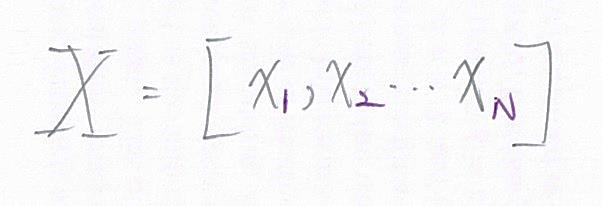 X = [x₁, x₂ ... x_N]